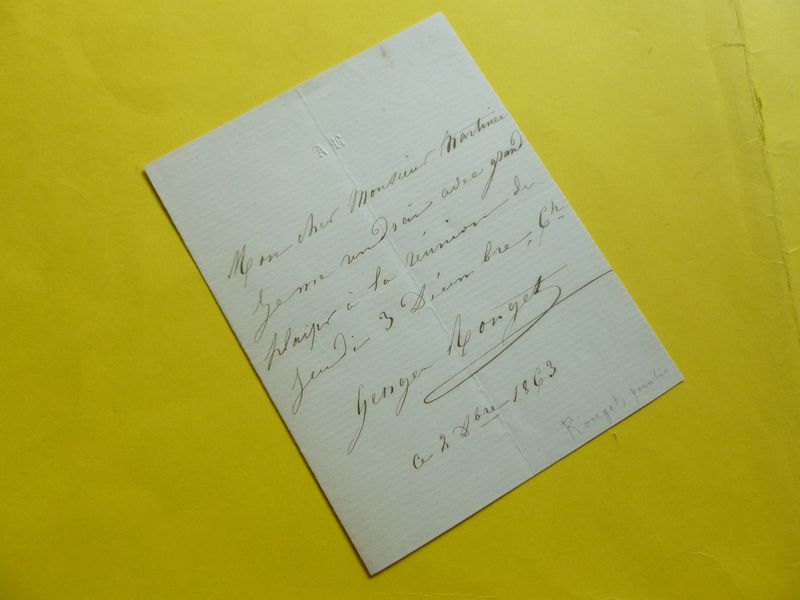 Mon cher Monsieur Martinet
Je me rendrai avec grand
plaisir à la réunion du
jeudi 3 Décembre, 6h
Georges Rouget
ce 2 Xbre 1863
Rouget, peintre